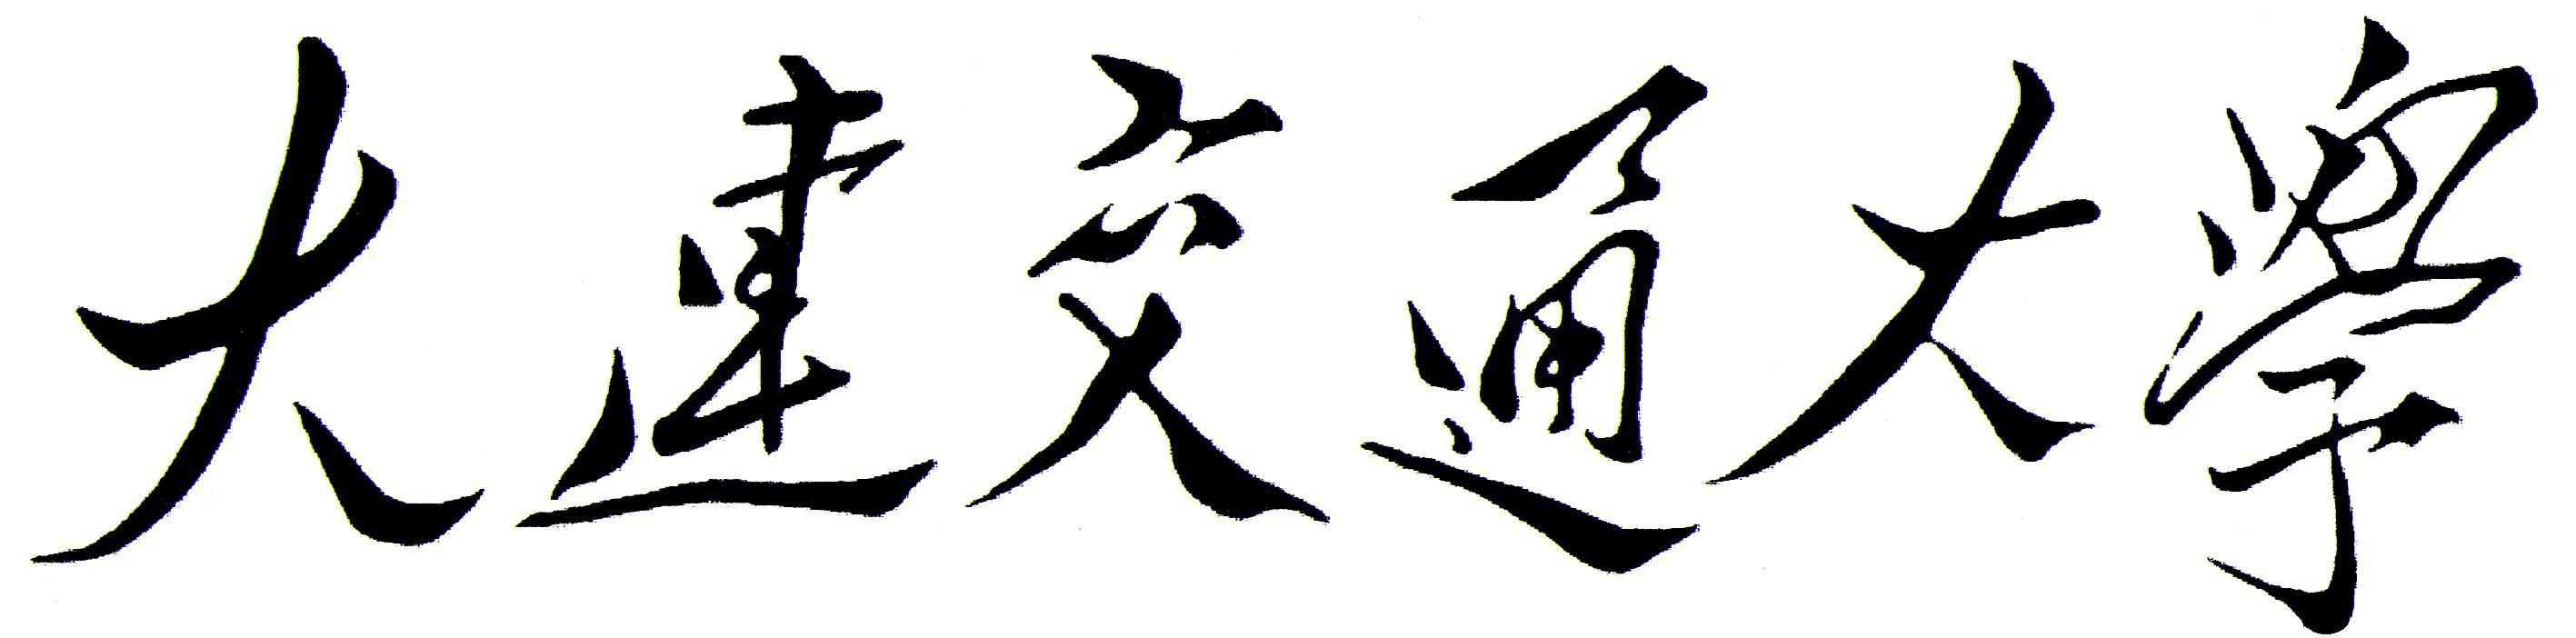 大連交通大學